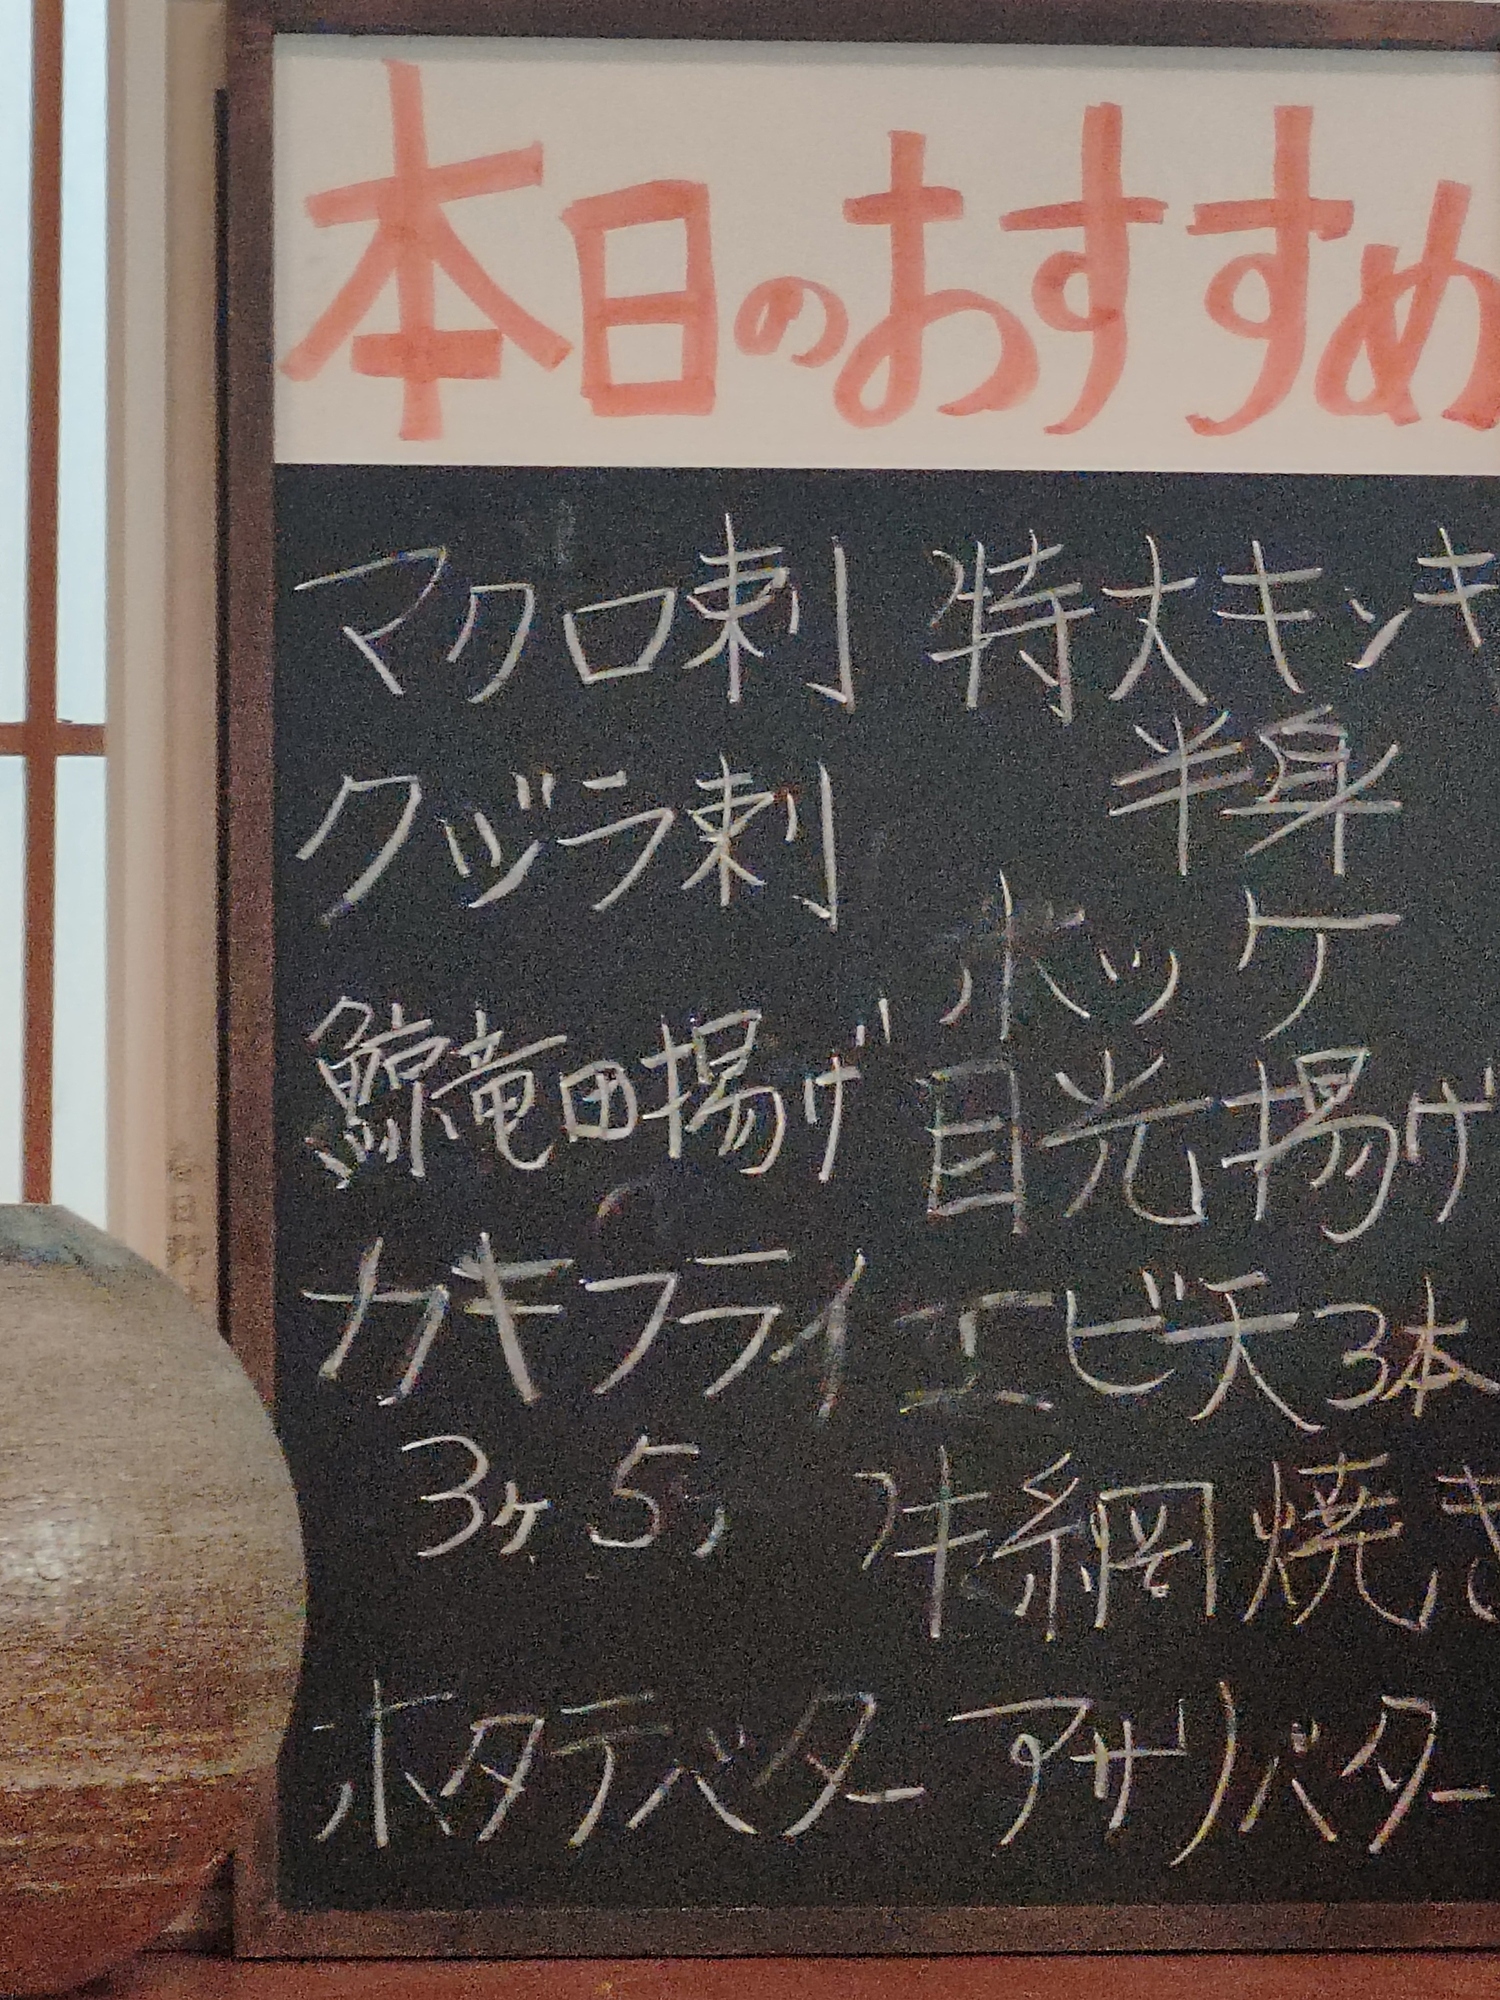 本日のおすすめ
マクロ刺
クジラ刺
鯨竜田揚げ
カキフライ
3ヶ 5〃
ホタテバター
特大キンキ
半身
ホッケ
目光揚げ
エビ天3本
牛網焼き
アサリバター